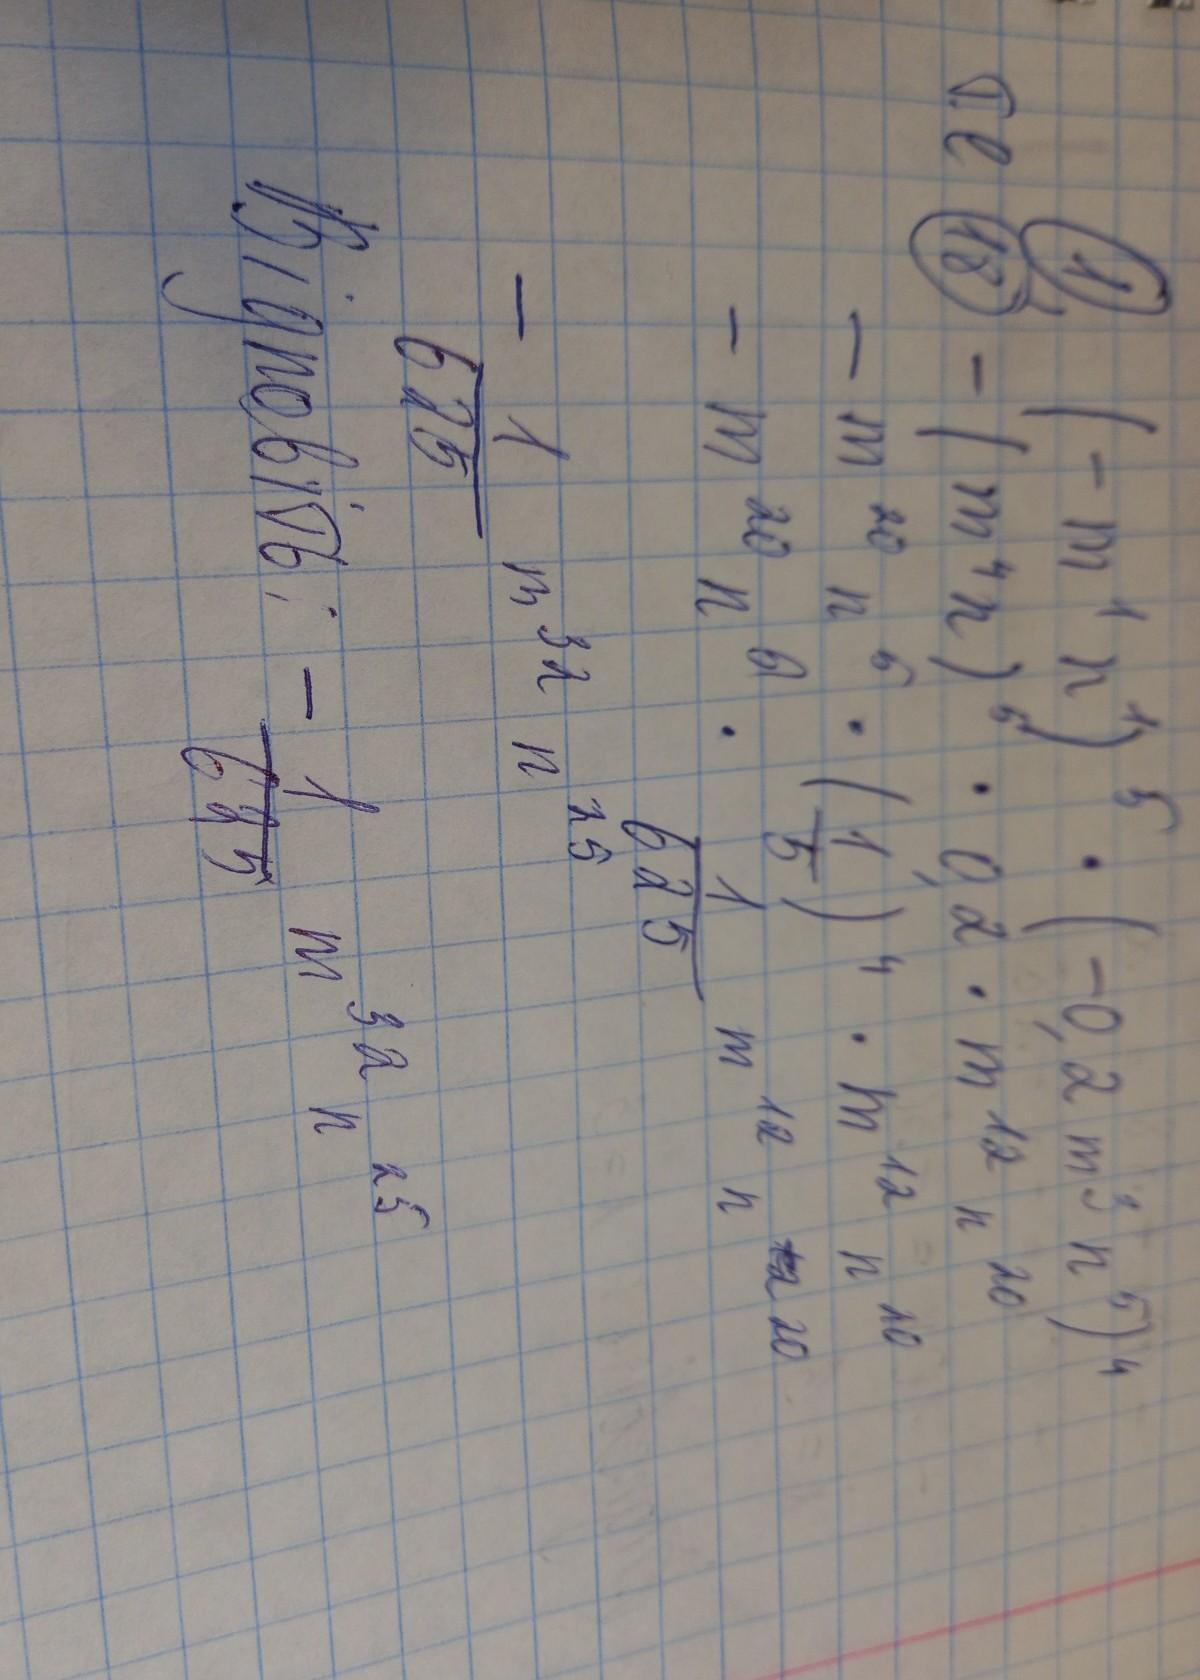 1 (-m¹n¹)⁵ · (-0,2m³n⁵)⁴
18 -(m⁴n)⁵ · 0,2 · m¹²n²⁰
-m²⁰n⁵ · (1/5)⁴ · m¹²n²⁰
-m²⁰n⁶ · 1/625 m¹²n²⁰
- 1/625 m³²n²⁵
Відповіть: - 1/625 m³²n²⁵